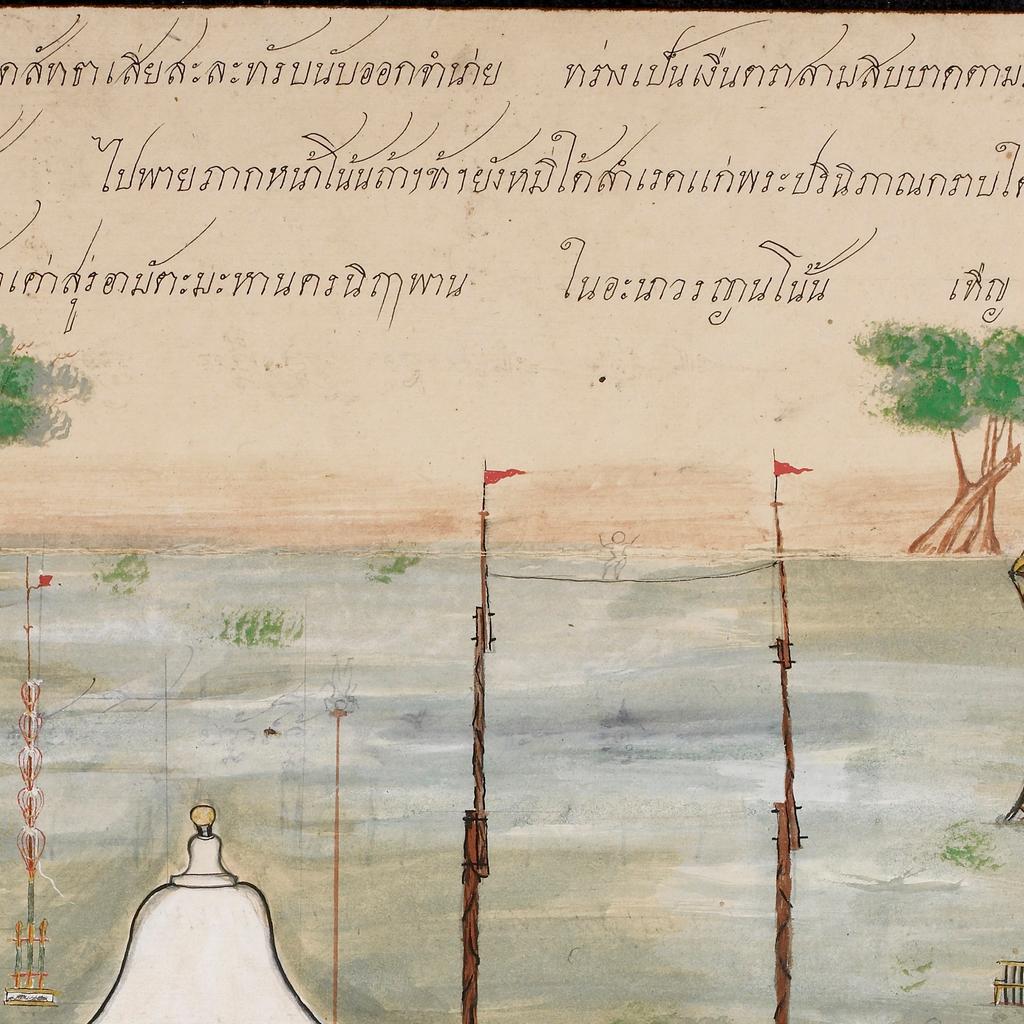 สัทธาเสียสะละทรับนับออกจำน่าย ทร่างเป็นเงินตราสามสิบบาดตาม
ไปพายภากหน้าโน้นถ้าฯข้าฯยังหมิได้สำเรดแก่พระปรินิภาณกราบ
เค่าสู่รอามัตะมะหานครนิฤพาน ในอะนาวรญานโน้น เทีญ